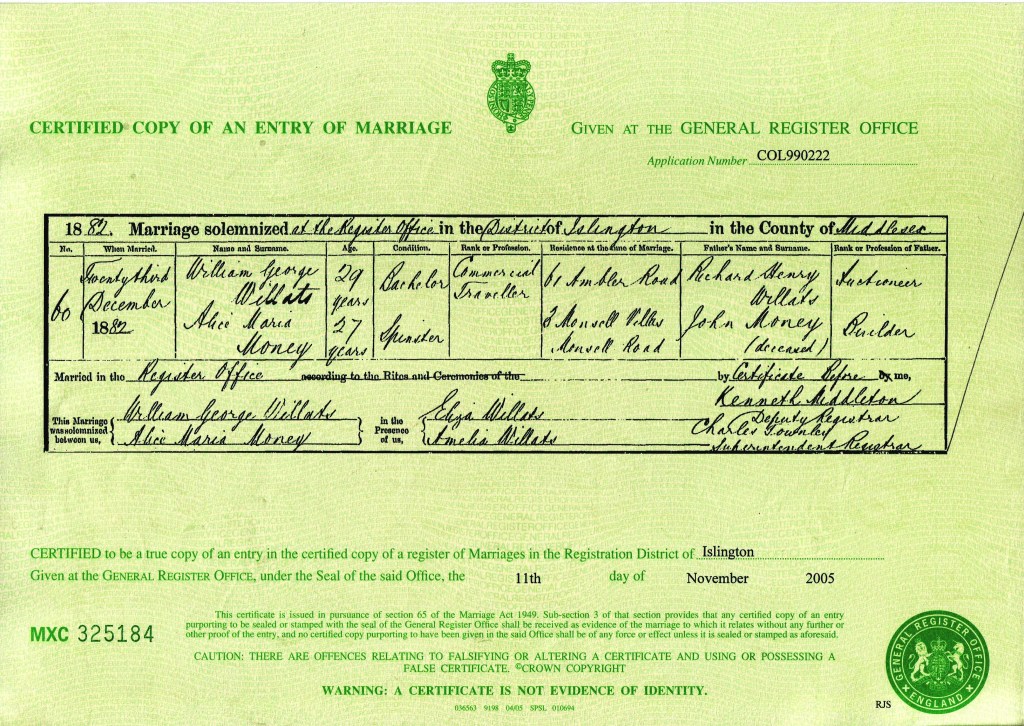 CERTIFIED COPY OF AN ENTRY OF MARRIAGE
GIVEN AT THE GENERAL REGISTER OFFICE
Application Number COL990222
1882. Marriage solemnized at the Register Office in the District of Islington in the County of Middlesex
No. When Married. Name and Surname. Age. Condition. Rank or Profession. Residence at the time of Marriage. Father's Name and Surname. Rank or Profession of Father.
60 Twenty third December 1882
William George Willats 29 years Bachelor Commercial Traveller 61 Ambler Road Richard Henry Willats Auctioneer
Alice Maria Money 27 years Spinster 2 Monsell Villas Monsell Road John Money (deceased) Builder
Married in the Register Office according to the Rites and Ceremonies of the by Certificate Before by me,
This Marriage was solemnized between us, William George Willats Alice Maria Money in the Presence of us, Eliza Willats Amelia Willats
Kenneth Middleton
Deputy Registrar
Charles Townley
Superintendent Registrar
CERTIFIED to be a true copy of an entry in the certified copy of a register of Marriages in the Registration District of Islington
Given at the GENERAL REGISTER OFFICE, under the Seal of the said Office, the 11th day of November 2005
This certificate is issued in pursuance of section 65 of the Marriage Act 1949. Sub-section 3 of that section provides that any certified copy of an entry
purporting to be sealed or stamped with the seal of the General Register Office shall be received as evidence of the marriage to which it relates without any further or
other proof of the entry, and no certified copy purporting to have been given in the said Office shall be of any force or effect unless it is sealed or stamped as aforesaid.
MXC 325184
CAUTION: THERE ARE OFFENCES RELATING TO FALSIFYING OR ALTERING A CERTIFICATE AND USING OR POSSESSING A
FALSE CERTIFICATE. ©CROWN COPYRIGHT
WARNING: A CERTIFICATE IS NOT EVIDENCE OF IDENTITY.
036563 9198 04/05 SPSL 010694
RJS
GENERAL REGISTER OFFICE
ENGLAND